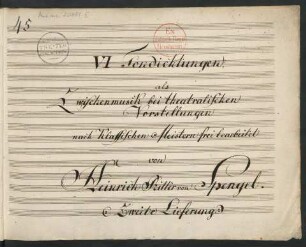 45
VI Tondichtungen
als
Zwischenmusik bei theatralischen
Vorstellungen
nach klassischen Meistern frei bearbeitet
von
Heinrich Ritter von Spengel.
Zweite Lieferung